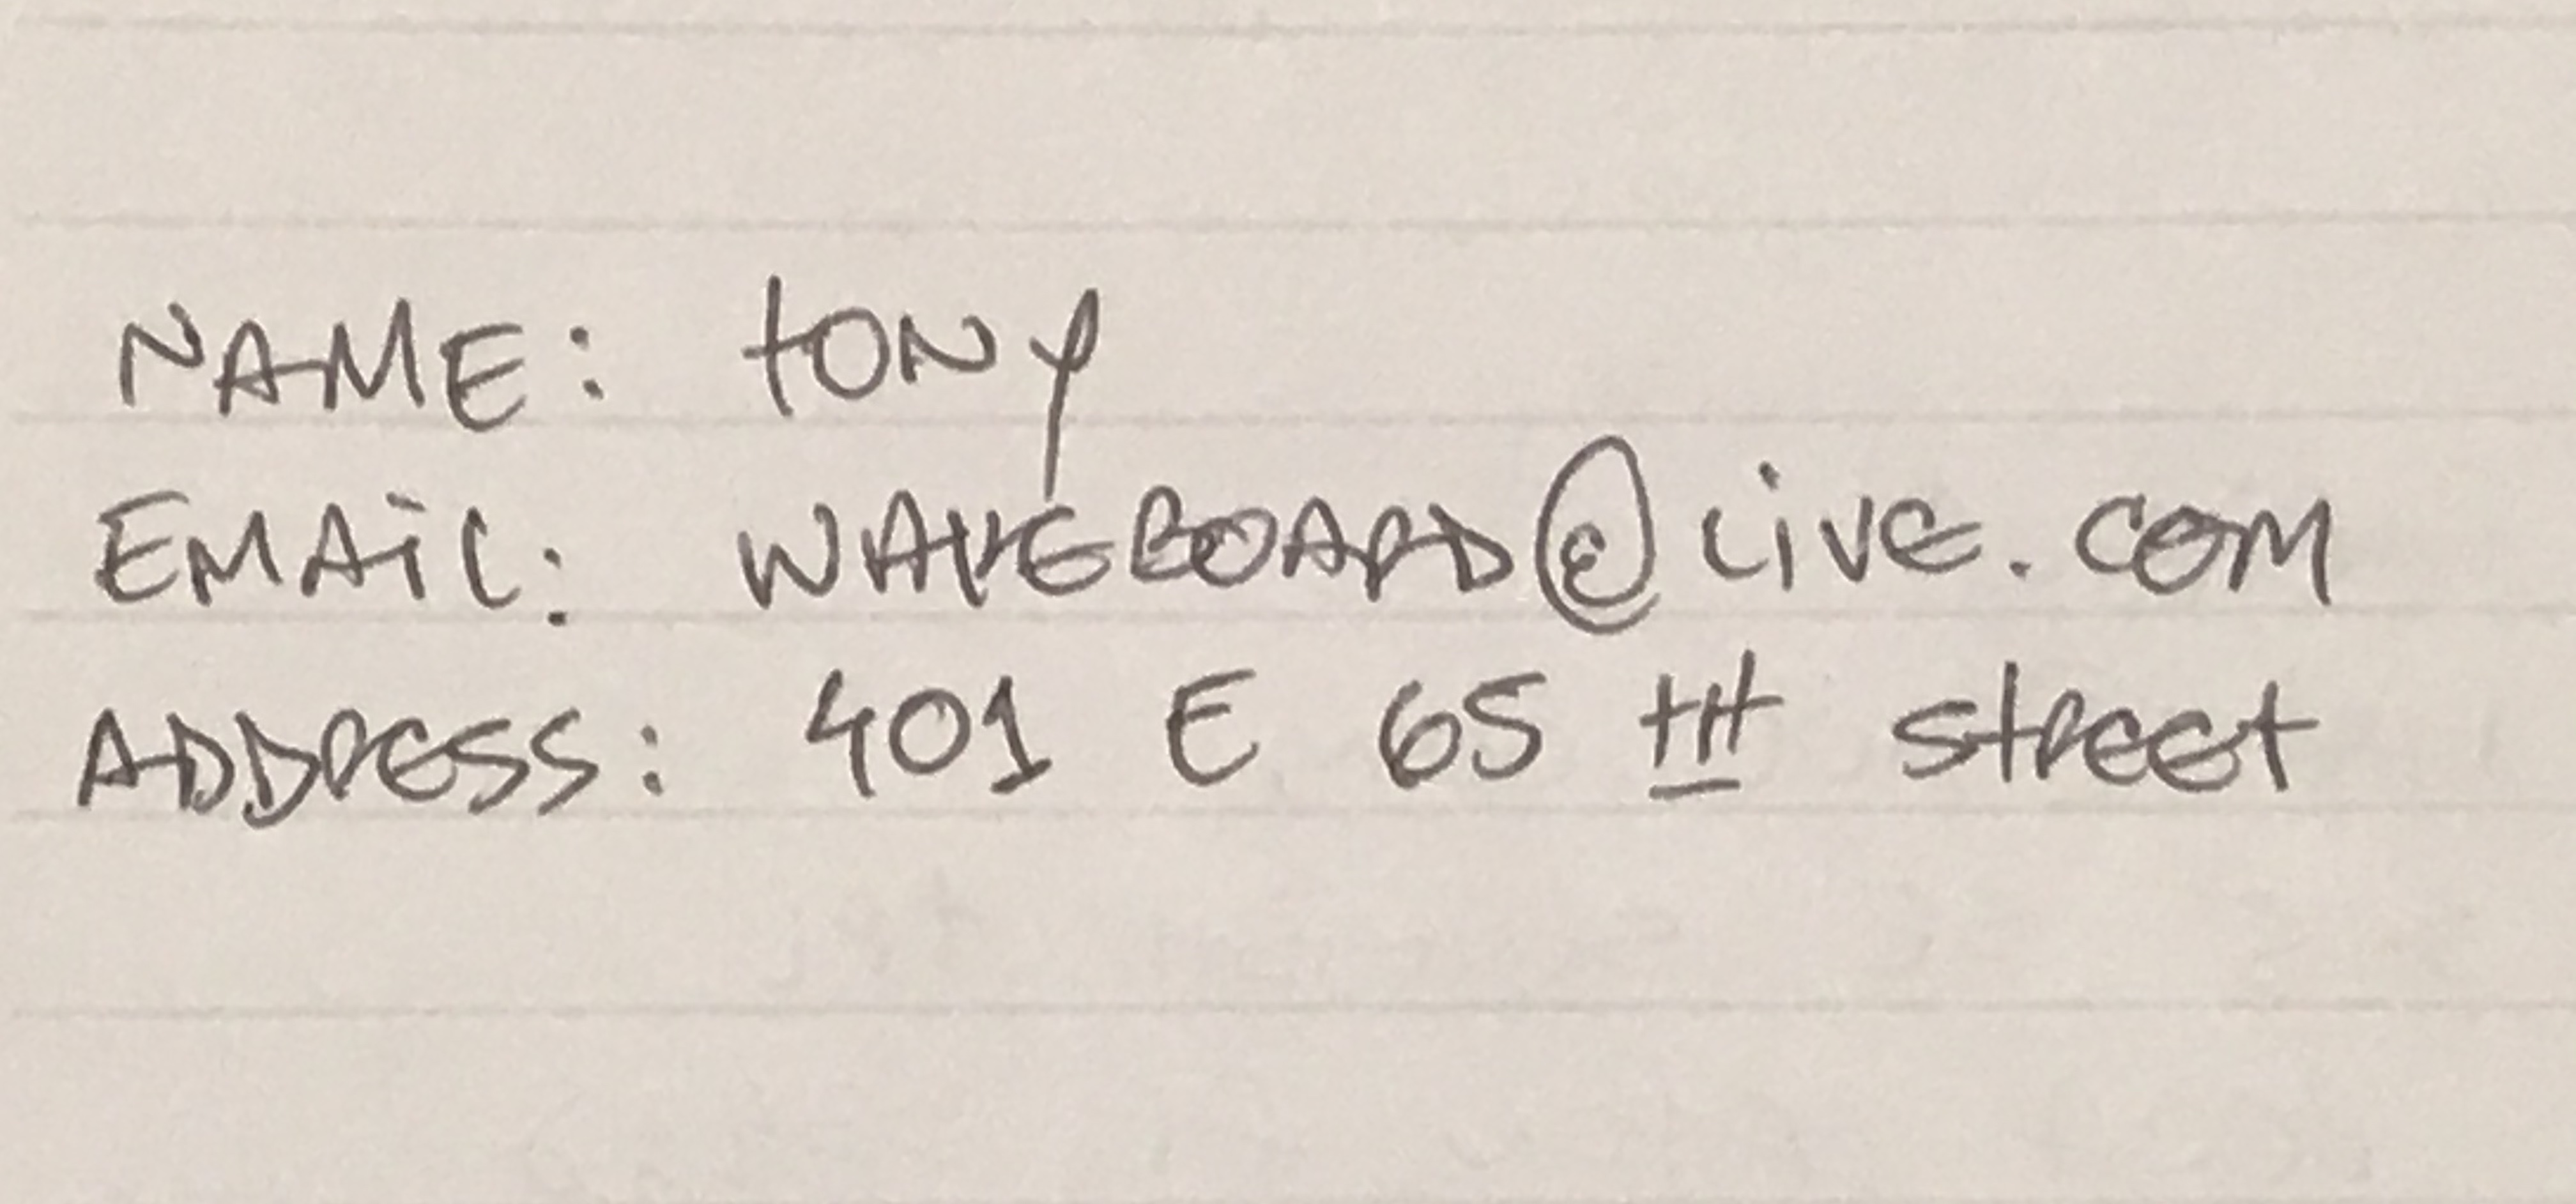 NAME: tONy
EMAiL: WAVEBOARD@LiVE.COM
ADDRESS: 401 E 65 tH Street